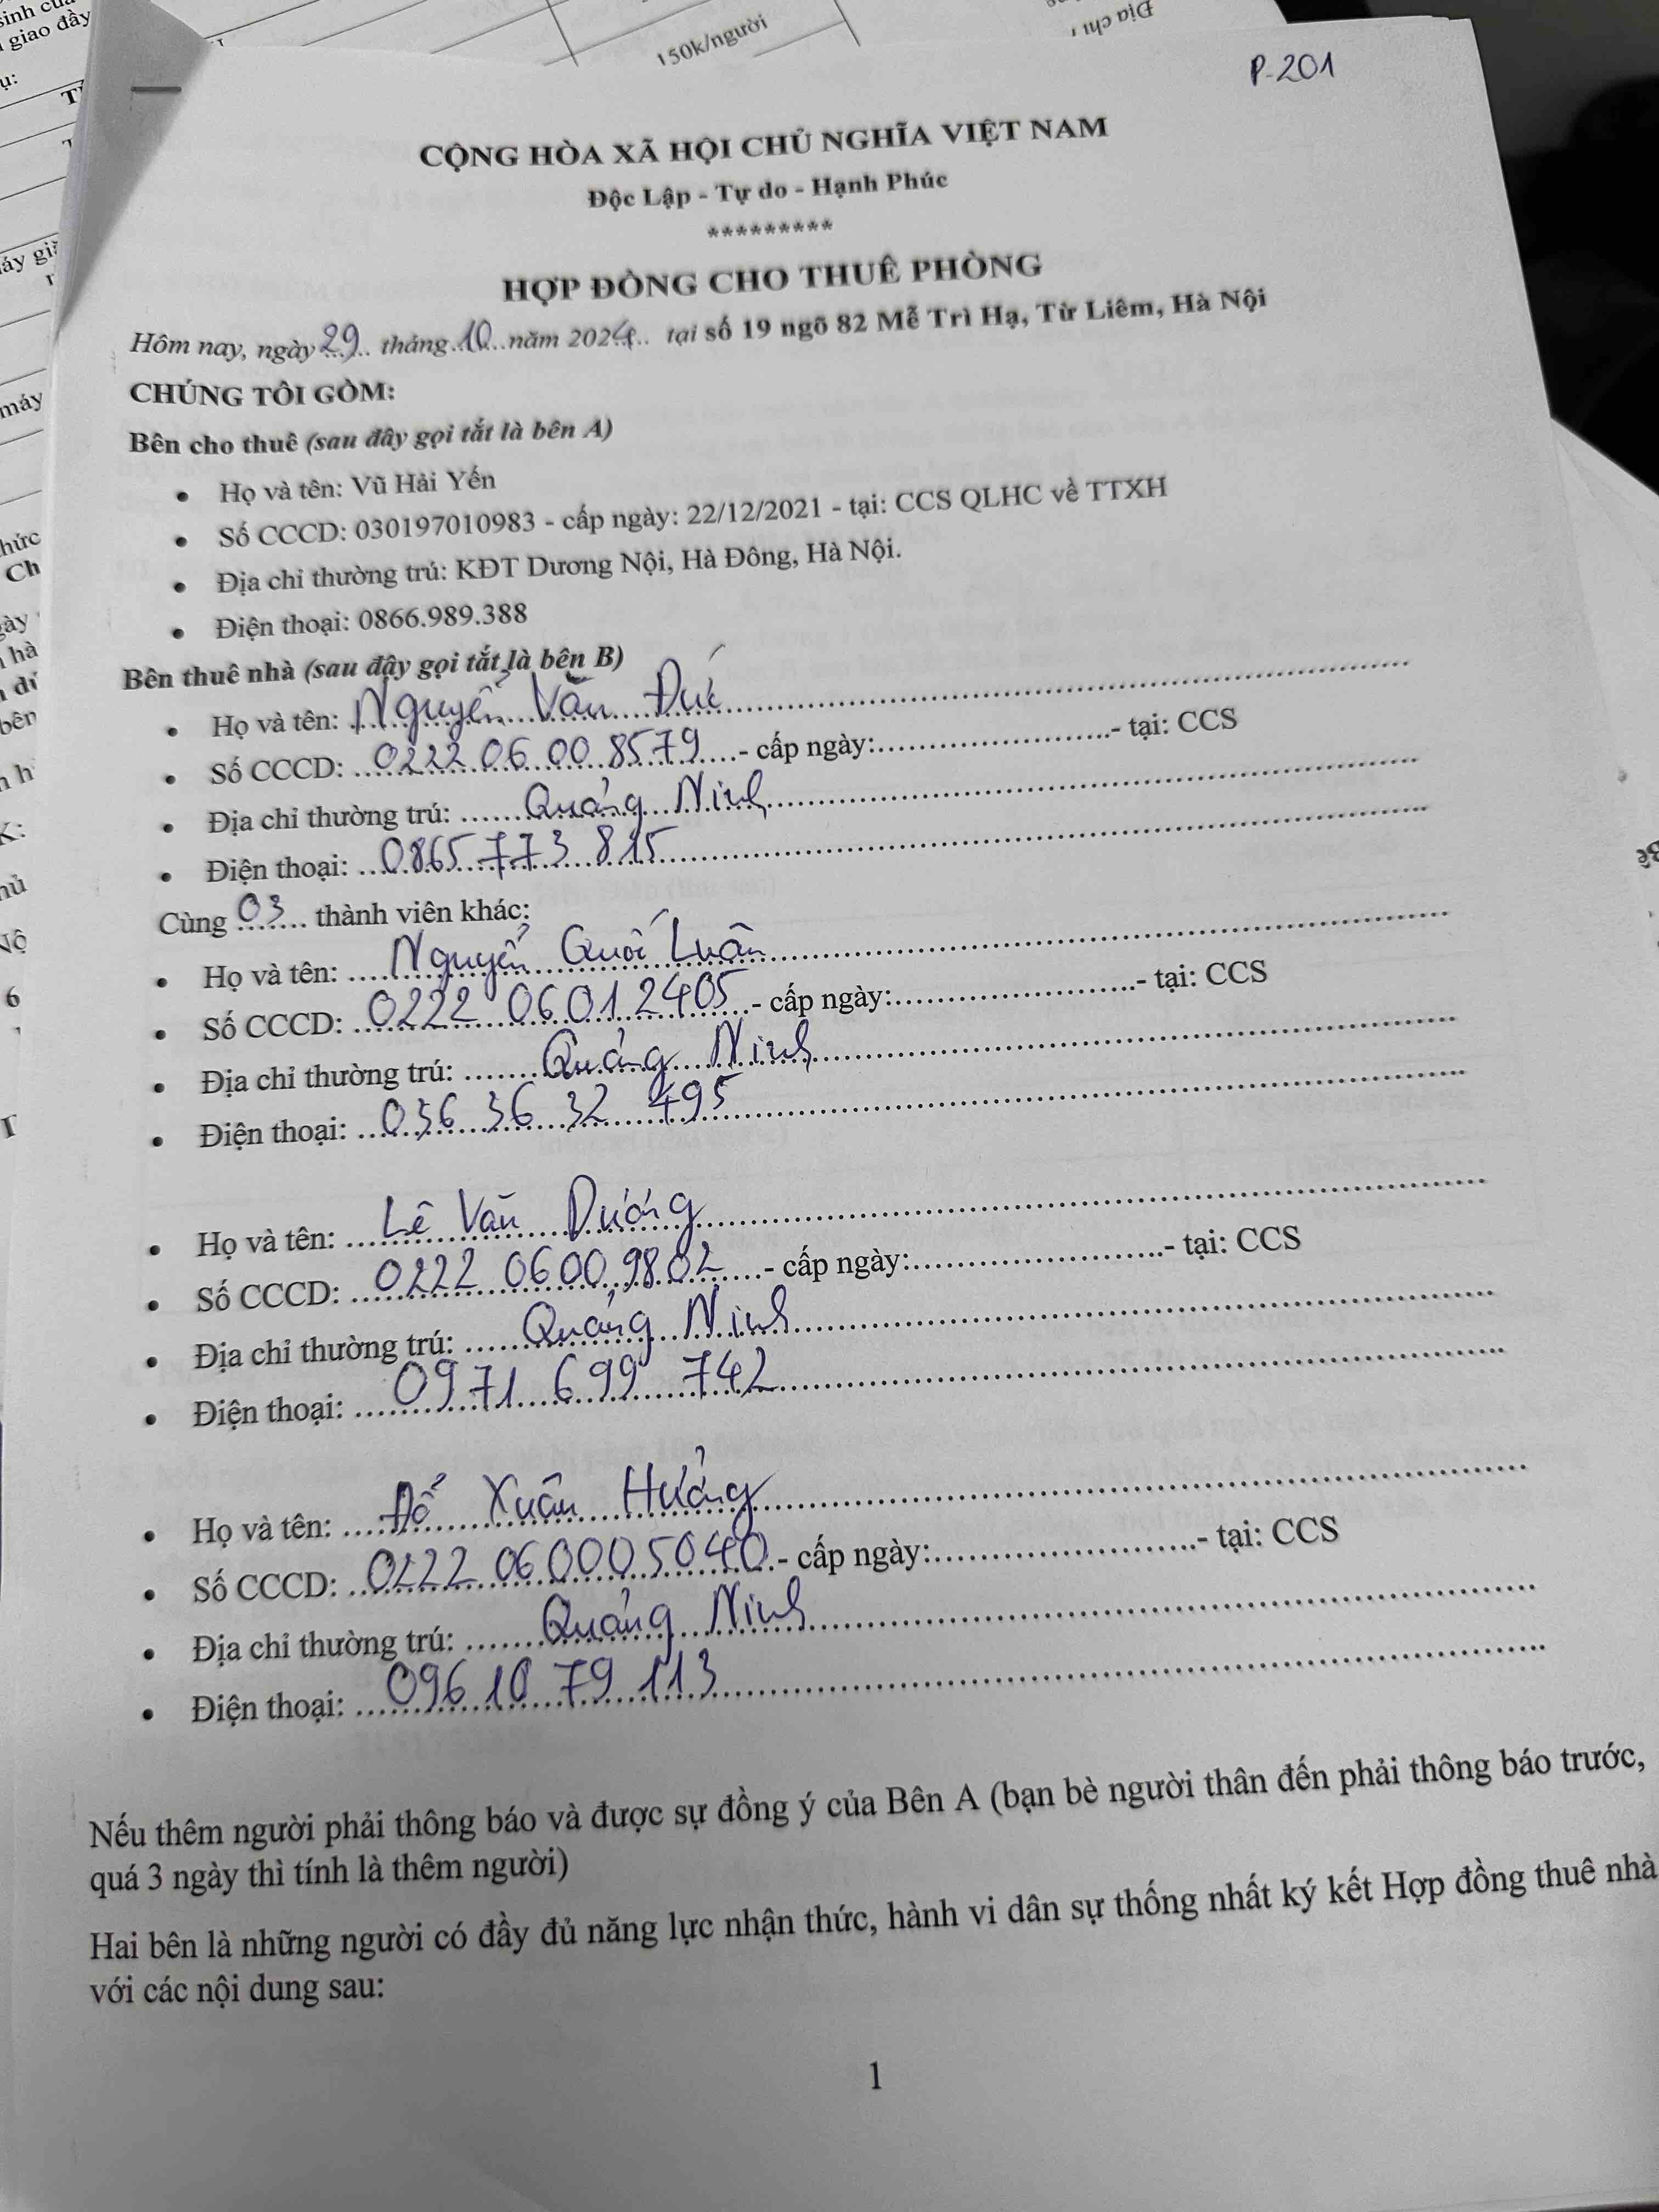 P-201
CỘNG HÒA XÃ HỘI CHỦ NGHĨA VIỆT NAM
Độc Lập - Tự do - Hạnh Phúc
*********
HỢP ĐỒNG CHO THUÊ PHÒNG
Hôm nay, ngày 29 tháng 10 năm 2024 tại số 19 ngõ 82 Mễ Trì Hạ, Từ Liêm, Hà Nội
CHÚNG TÔI GỒM:
Bên cho thuê (sau đây gọi tắt là bên A)
• Họ và tên: Vũ Hải Yến
• Số CCCD: 030197010983 - cấp ngày: 22/12/2021 - tại: CCS QLHC về TTXH
• Địa chỉ thường trú: KĐT Dương Nội, Hà Đông, Hà Nội.
• Điện thoại: 0866.989.388
Bên thuê nhà (sau đậy gọi tắt là bên B)
• Họ và tên: Nguyễn Văn Đức
• Số CCCD: 0222 06 00 8579 - cấp ngày: - tại: CCS
• Địa chỉ thường trú: Quảng Ninh
• Điện thoại: 0865 773 815
Cùng 03 thành viên khác:
• Họ và tên: Nguyễn Quốc Luân
• Số CCCD: 0222 06012405 - cấp ngày: - tại: CCS
• Địa chỉ thường trú: Quảng Ninh
• Điện thoại: 036 36 32 495
• Họ và tên: Lê Văn Dương
• Số CCCD: 0222 0600 9802 - cấp ngày: - tại: CCS
• Địa chỉ thường trú: Quảng Ninh
• Điện thoại: 0971 699 742
• Họ và tên: Đỗ Xuân Hưởng
• Số CCCD: 0222 060005040 - cấp ngày: - tại: CCS
• Địa chỉ thường trú: Quảng Ninh
• Điện thoại: 096 10 79 113
Nếu thêm người phải thông báo và được sự đồng ý của Bên A (bạn bè người thân đến phải thông báo trước,
quá 3 ngày thì tính là thêm người)
Hai bên là những người có đầy đủ năng lực nhận thức, hành vi dân sự thống nhất ký kết Hợp đồng thuê nhà
với các nội dung sau:
1
150k/người